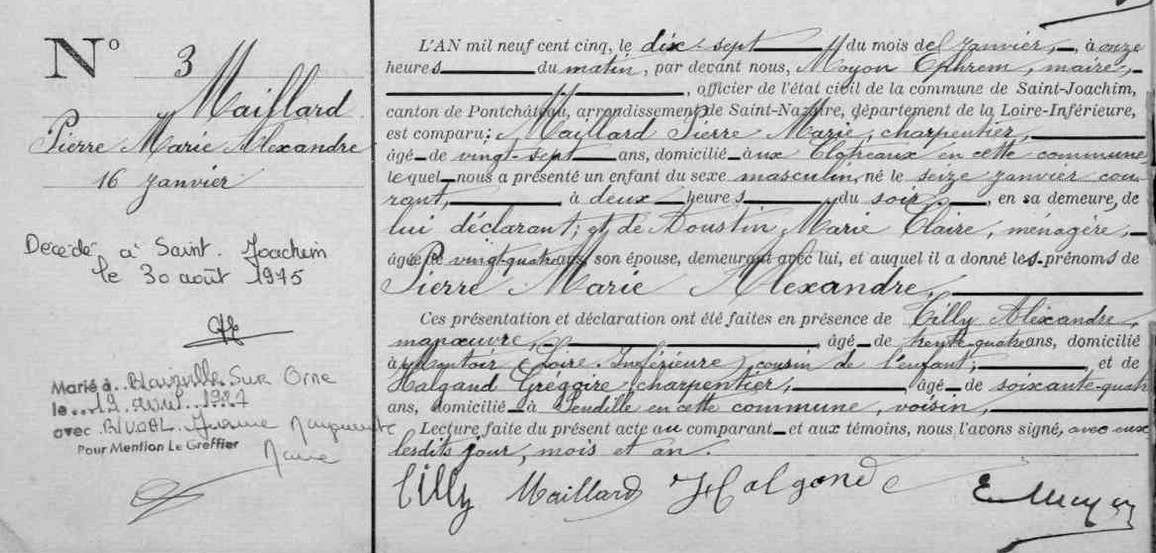 N° 3
Maillard
Pierre Marie Alexandre
16 janvier
Décédé à Saint-Joachim
le 30 août 1975
Marié à Blainville Sur Orne
le avril
avec
Pour Mention Le Greffier
L'AN mil neuf cent cinq, le dix-sept du mois de janvier, à onze
heures du matin, par devant nous, Moyon Ephrem, maire,
, officier de l'état civil de la commune de Saint-Joachim,
canton de Pontchâteau, arrondissement de Saint-Nazaire, département de la Loire-Inférieure,
est comparu: Maillard Pierre Marie, charpentier,
âgé de vingt-sept ans, domicilié aux en cette commune
lequel nous a présenté un enfant du sexe masculin, né le seize janvier cou-
rant, à deux heures du soir, en sa demeure, de
lui déclarant; et de Marie Claire, ménagère,
âgée de vingt-quatre ans, son épouse, demeurant avec lui, et auquel il a donné les prénoms de
Pierre Marie Alexandre.
Ces présentation et déclaration ont été faites en présence de Cilly Alexandre,
manœuvre, âgé de trente-quatre ans, domicilié
à Montoir (Loire-Inférieure) cousin de l'enfant, et de
Halgand Grégoire, charpentier, âgé de soixante-quatre
ans, domicilié à Pendille en cette commune, voisin,
Lecture faite du présent acte au comparant et aux témoins, nous l'avons signé, avec eux
lesdits jour, mois et an.
Cilly Maillard Halgand E. Moyon